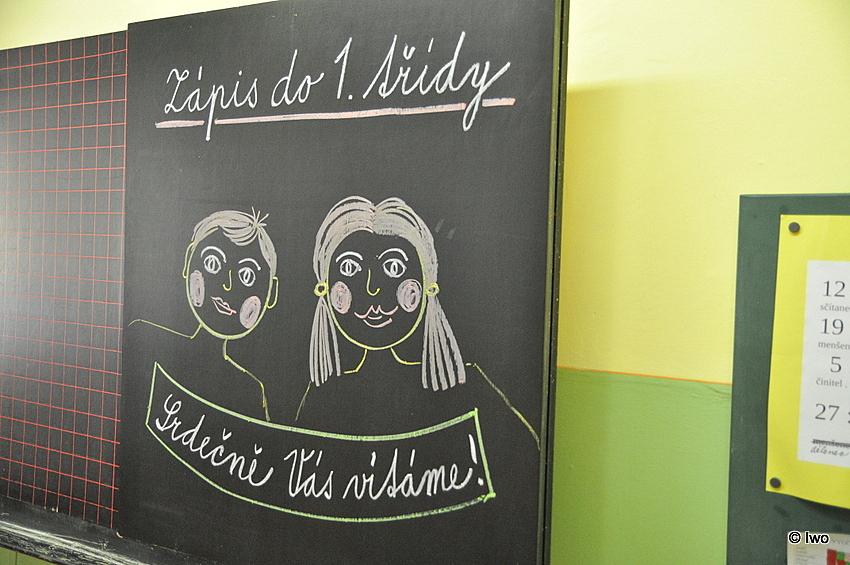 Zápis do 1. třídy
Srdečně Vás vítáme!
12
sčítane
19
menšen
5
činitel .
27 :
menšene
dělenec
© Iwo